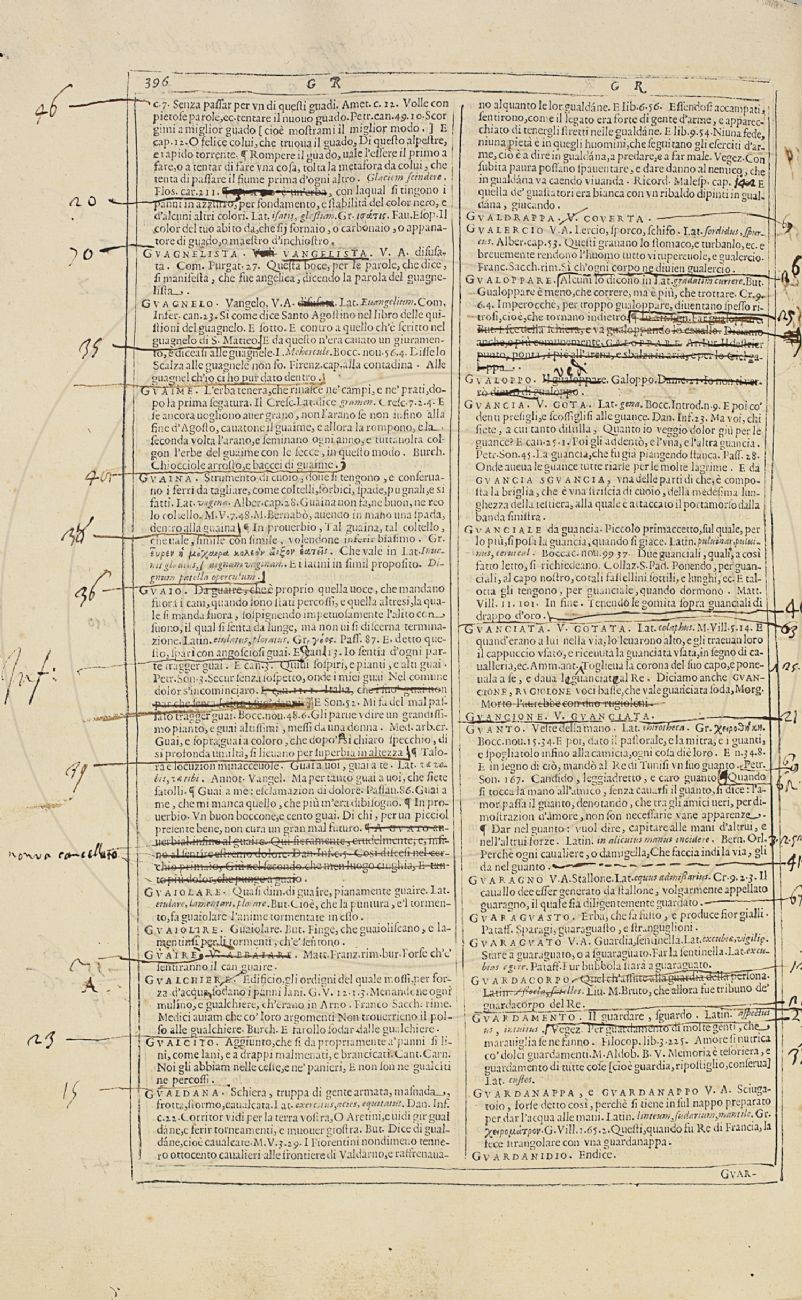 396 G R
c.7. Senza passar per vn di questi guadi. Amet. c. 12. Volle con
pietose parole, ec. tentare il nuouo guado. Petr. can. 49. 10. Scor
gimi a miglior guado [cioè mostrami il miglior modo.] E
cap. 12. O felice colui, che truoua il guado, Di questo alpestre,
e rapido torrente. ¶ Rompere il guado, uale l'essere il primo a
fare, o a tentar di fare vna cosa, tolta la metafora da colui, che
tenta di passare il fiume prima d'ogni altro. Glaciem scindere.
Flos. car. 211. con laqual si tingono i
panni in azzurro, per fondamento, e stabilità del color nero, e
d'alcuni altri colori. Lat. isatis, glastum. Gr. ἰσάτις. Fau. Esop. Il
color del tuo abito da, che sij fornaio, o carbonaio, o appana-
tore di guado, o maestro d'inchiostro.
GVAGNELISTA. VANGELISTA. V. A. disusa-
ta. Com. Purgat. 27. Questa boce, per le parole, che dice,
si manifesta, che fue angelica, dicendo la parola del guagne-
lista.
GVAGNELO. Vangelo, V. A. disusata. Lat. Euangelium. Com.
Infer. can. 23. Si come dice Santo Agostino nel libro delle qui-
stioni del guagnelo. E sotto. E contro a quello ch'è scritto nel
guagnelo di S. Matteo. E da questo n'era cauato un giuramen-
to, e diceasi alle guagnele. L. Mehercule. Bocc. nou. 56. 4. Disselo
Scalza alle guagnele non fo. Firenz. cap. alla contadina. Alle
guagnel ch'io ci ho pur dato dentro.
GVAIME. L'erba tenera, che rinasce ne' campi, e ne' prati, do-
po la prima segatura. Il Cresc. Lat. dice gramen. Cresc. 7. 2. 4. E
se ancora uogliono auer grano, non l'arano se non infino alla
fine d'Agosto, cauatone il guaime, e allora la rompono, e la
seconda volta l'arano, e seminano ogni anno, e tutta uolta col-
gon l'erbe del guaime con le secce, in questo modo. Burch.
Chiocciole arrosto, e baccei di guaime.
GVAINA. Strumento di cuoio, doue si tengono, e conserua-
no i ferri da tagliare, come coltelli, forbici, spade, pugnali, e si
fatti. Lat. vagina. Alber. cap. 28. Guaina non fa, ne buon, ne reo
lo coltello. M. V. 7. 48. M. Bernabò, auendo in mano una spada,
dentro alla guaina ¶ In prouerbio, Tal guaina, tal coltello,
che uale, simile con simile, volendone inferir biasimo. Gr.
Che vale in Lat.
E i latini in simil proposito. Di-
gnum patella operculum.
GVAIO. Da guaire, che è proprio quella uoce, che mandano
fuora i cani, quando sono stati percossi, e quella altresì, la qua-
le si manda fuora, sospignendo impetuosamente l'alito con
suono, il qual si senta da lunge, ma non ui si discerna termina-
zione. Latin. eiulatus, ploratus. Gr. γόος. Pass. 87. E detto que-
sto, spari con angosciosi guai. E can. 13. Io sentia d'ogni par-
te tragger guai. E can. 3. Quiui sospiri, e pianti, e alti guai.
Petr. Son. 3. Secur senza sospetto, onde i miei guai Nel comune
dolor s'incominciaro.
E Son. 52. Mi fa del mal pas-
sato tragger guai. Bocc. nou. 48. 6. Gli parue vdire un grandissi-
mo pianto, e guai altissimi, messi da una donna. Med. arb. cr.
Guai, e sopraguai a coloro, che dopo si chiaro specchio, di
si profonda umiltà, si lieuano per superbia in altezza ¶ Talo-
ra è locuzion minacceuole. Guai a uoi, guai a te. Lat.
vobis, vae tibi. Annot. Vangel. Ma per tanto guai a uoi, che siete
satolli. ¶ Guai a me: esclamazion di dolore. Passau. 86. Guai a
me, che mi manca quello, che più m'era di bisogno. ¶ In pro-
uerbio. Vn buon boccone, e cento guai. Di chi, per un picciol
presente bene, non cura un gran mal futuro.
GVAIOLARE. Quasi dim. di guaire, pianamente guaire. Lat.
eiulare, lamentari, plorare. But. Cioè, che la puntura, e 'l tormen-
to, fa guaiolare l'anime tormentate in esso.
GVAIOLIRE. Guaiolare. But. Finge, che guaioliscano, e la-
mentinsi per li tormenti, ch'e' sentono.
GVAIRE. V. ABBAIARE. Matt. Franz. rim. bur. Forse ch'e'
sentiranno il can guaire.
GVALCHIERE. Edificio, gli ordigni del quale mossi, per for-
za d'acqua, sodano i panni lani. G. V. 12. 1. 3. Menando ne ogni
mulino, e gualchiere, ch'erano in Arno. Franco Sacch. rime.
Medici auiam che co' loro argomenti Non trouerrieno il pol-
so alle gualchiere. Burch. E farollo sodar dalle gualchiere.
GVALCITO. Aggiunto, che si da propriamente a' panni si li-
ni, come lani, e a drappi malmenati, e brancicati. Cant. Carn.
Noi gli abbiam nelle ceste, e ne' panieri, E non son ne gualciti
ne percossi.
GVALDANA. Schiera, truppa di gente armata, masnada,
frotta, stormo, caualcata. Lat. exercitus, acies, equitatus. Dan. Inf.
c. 22. Corritor vidi per la terra vostra, O Aretini, e uidi gir gual
dane, e ferir torneamenti, e muouer giostra. But. Dice di gual-
dane, cioè caualcate. M. V. 3. 29. I Fiorentini nondimeno tenne-
ro ottocento caualieri alle frontiere di Valdarno, e raffrenaua-
46
20
30
35
40
38
36
Inf:
39
non va cancellato
21
A
23
15
G R
no alquanto le lor gualdane. E lib. 6. 56. Essendosi accampati,
sentirono, come il legato era forte di gente d'arme, e apparec-
chiato di tenergli stretti nelle gualdane. E lib. 9. 54. Niuna fede,
niuna pietà è in quegli huomini, che seguitano gli eserciti d'ar-
me, ciò è a dire in gualdana, a predare, e a far male. Vegez. Con
subita paura possano spauentare, e dare danno al nemico, che
in gualdana va caendo viuanda. Ricord. Malesp. cap. E
quella de' guastatori era bianca con vn ribaldo dipinti in gual
dana, giucando.
GVALDRAPPA. V. COVERTA.
GVALERCIO V. A. Lercio, sporco, schifo. Lat. sordidus, spur-
cus. Alber. cap. 53. Questi grauano lo stomaco, e turbanlo, ec. e
breuemente rendono l'huomo tutto vitupereuole, e gualercio.
Franc. Sacch. rim. Si ch'ogni corpo ne diuien gualercio.
GVALOPPARE. Alcuni lo dicono in Lat. gradatim currere. But.
Gualoppare è meno, che correre, ma è più, che trottare. Cr. 9.
6. 4. Imperocchè, per troppo gualoppare, diuentano spesso ri-
trosi, cioè, che tornano indietro.
GVALOPPO. Il gualoppare. Galoppo.
GVANCIA. V. GOTA. Lat. gena. Bocc. Introd. n. 9. E poi co'
denti presigli, e scossiglisi alle guance. Dan. Inf. 23. Ma voi, chi
siete, a cui tanto distilla, Quanto io veggio dolor giù per le
guance? E can. 25. 1. Poi gli addentò, e l'vna, e l'altra guancia.
Petr. Son. 45. La guancia, che fu già piangendo stanca. Pass. 28.
Onde auea le guance tutte riarse per le molte lagrime. E da
GVANCIA SGVANCIA, vna delle parti di che, è compo-
sta la briglia, che è vna striscia di cuoio, della medesima lun-
ghezza della testiera, alla quale è attaccato il portamorso dalla
banda sinistra.
GVANCIALE da guancia. Piccolo primaccetto, sul quale, per
lo più, si posa la guancia, quando si giace. Latin. puluinar, pului-
nus, ceruical. Boccac. nou. 99. 37. Due guanciali, quali, a così
fatto letto, si richiedeano. Collaz. S. Pad. Ponendo, per guan-
ciali, al capo nostro, cotali fastellini sottili, e lunghi, ec. E tal-
otta gli tengono, per guanciale, quando dormono. Matt.
Vill. 11. 101. In fine. Tenendo le gomita sopra guanciali di
drappo d'oro.
GVANCIATA. V. GOTATA. Lat. colaphus. M. Vill. 5. 14. E
quand'erano a lui nella via, lo leuarono alto, e gli traeuan loro
il cappuccio vsato, e riceuuta la guanciata vsata, in segno di ca-
ualleria, ec. Amm. ant. Toglieua la corona del suo capo, e pone-
uala a se, e daua le guanciate al Re. Diciamo anche GVAN-
CIONE, RVGIOLONE voci basse, che vale guanciata soda, Morg.
Morto l'aurebbe con due rugioloni.
GVANCIONE. V. GVANCIATA.
GVANTO. Veste della mano. Lat. chirotheca. Gr. χειροθήκη.
Bocc. nou. 15. 34. E poi, dato il pastorale, e la mitra, e i guanti,
e spogliatolo infino alla camicia, ogni cosa diè loro. E n. 34. 8.
E in segno di ciò, mandò al Re di Tunisi vn suo guanto. Petr.
Son. 167. Candido, leggiadretto, e caro guanto. Quando
si tocca la mano all'amico, senza cauarsi il guanto, si dice: l'a-
mor passa il guanto, denotando, che tra gli amici ueri, per di-
mostrazion d'amore, non son necessarie vane apparenze.
¶ Dar nel guanto: vuol dire, capitare alle mani d'altrui, e
nell'altrui forze. Latin. in alicuius manus incidere. Bern. Orl.
Perchè ogni caualiere, o damigella, Che faccia indi la via, gli
da nel guanto.
GVARAGNO V. A. Stallone. Lat. equus admissarius. Cr. 9. 2. 3. Il
cauallo dee esser generato da stallone, volgarmente appellato
guaragno, il quale sia diligentemente guardato.
GVARAGVASTO. Erba, che fa fusto, e produce fior gialli.
Pataff. Sparagi, guaraguasto, e stranguglioni.
GVARAGVATO V. A. Guardia, sentinella. Lat. excubiae, vigiliae.
Stare a guaraguato, o a sguaraguato. Far la sentinella. Lat. excu-
bias agere. Pataff. Fur bubbola starà a guaraguato.
GVARDACORPO. Quel ch'assiste alla guardia della persona.
Latin. Liu. M. Bruto, che allora fue tribuno de'
guardacorpo del Re.
GVARDAMENTO. Il guardare, sguardo. Latin. aspectus
us, intuitus. Vegez. Per guardamento di molte genti, che
marauiglia se ne fanno. Filocop. lib. 3. 225. Amore si nutrica
co' dolci guardamenti. M. Aldob. B. V. Memoria è tesoriera, e
guardamento di tutte cose [cioè guardia, ripostiglio, conserua]
Lat. custos.
GVARDANAPPA, e GVARDANAPPO V. A. Sciuga-
toio, forse detto così, perchè si tiene in sul nappo preparato
per dar l'acqua alle mani. Latin. linteum, sudarium, mantile. Gr.
χειρόμακτρον. G. Vill. 1. 65. 2. Questi, quando fu Re di Francia, la
fece strangolare con vna guardanappa.
GVARDANIDIO. Endice.
GVAR-